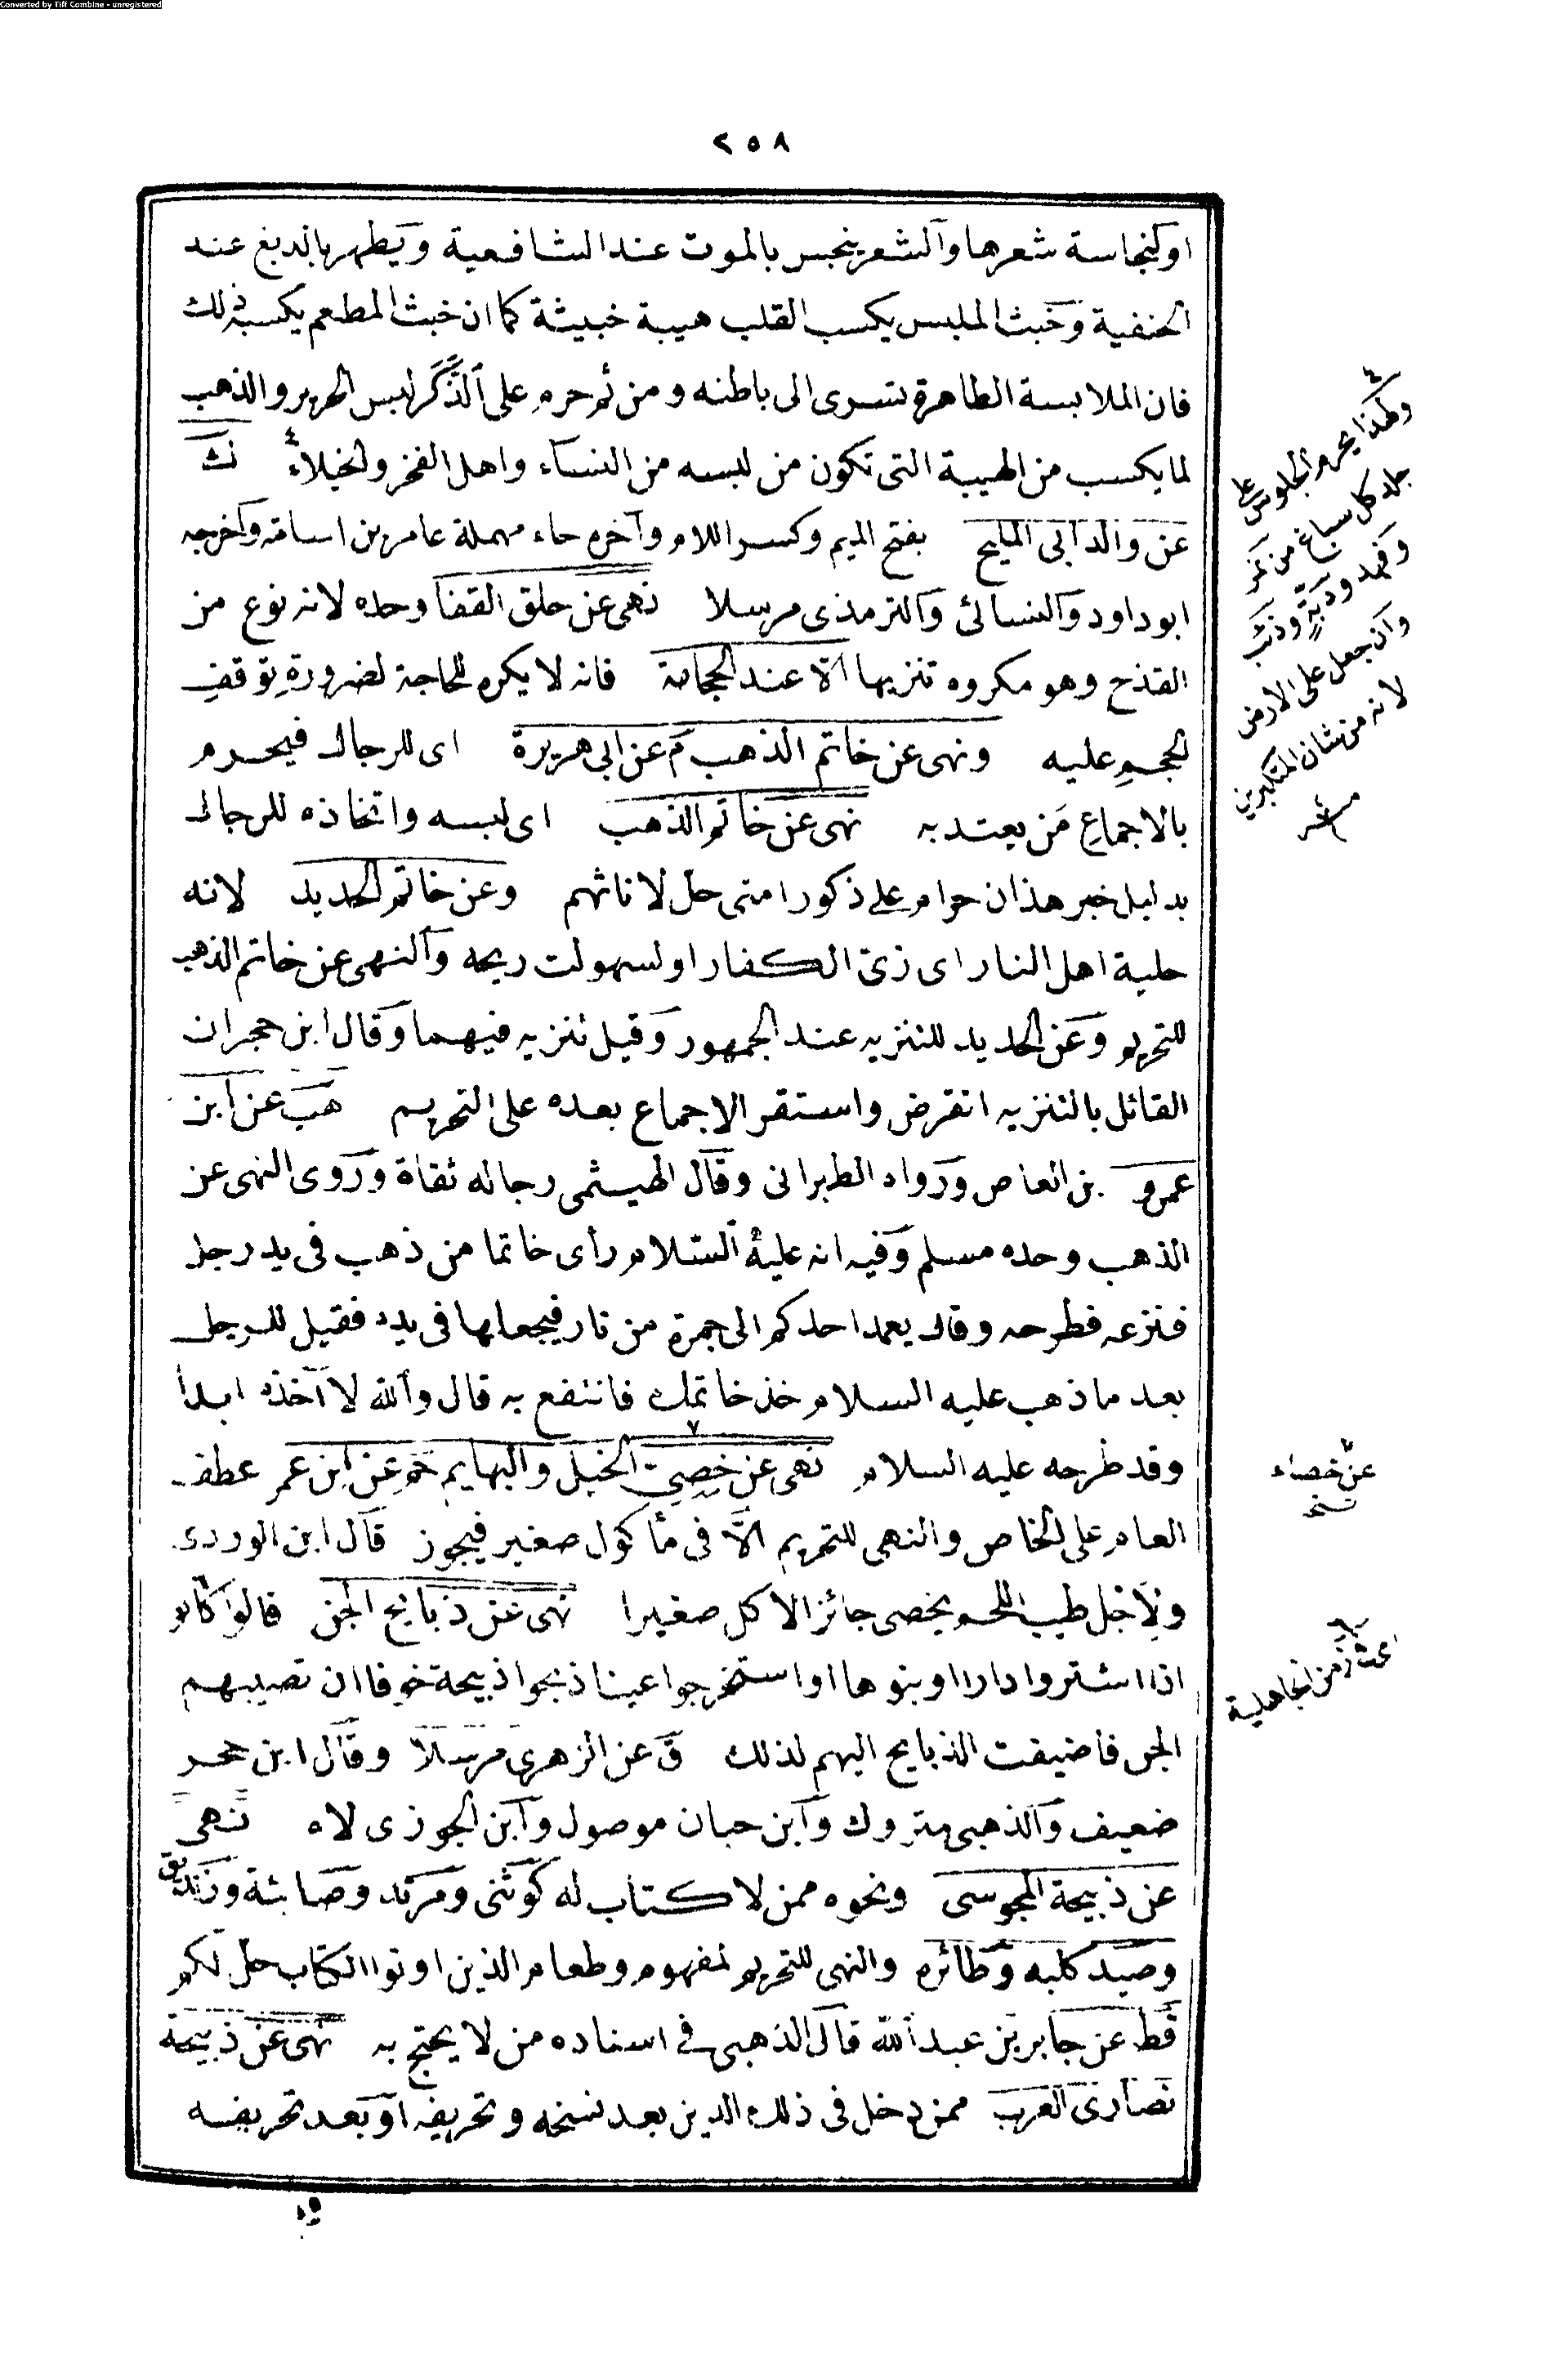 Converted by Tiff Combine - unregistered
٢٥٨
او لنجاسة شعرها والشعر ينجس بالموت عند الشافعية ويطهر بالدبغ عند
الحنفية وخبث الملبس يكسب القلب هيبة خبيثة كما ان خبث المطعم يكسبه ذلك
فان الملابسة الظاهرة تسرى الى باطنه ومن ثم حرم على الذكر لبس الحرير والذهب
لما يكسب من الهيبة التى تكون من لبسه من النساء واهل الفخر والخيلاء ك
عن والد ابى المليح بفتح الميم وكسر اللام وآخره حاء مهملة عامر بن اسامة واخرجه
ابو داود والنسائى والترمذى مرسلا نهى عن حلق القفا وحده لانه نوع من
القذح وهو مكروه تنزيها الا عند الحجامة فانه لا يكره للحاجة لضرورة توقف
الحجم عليه ونهى عن خاتم الذهب م عن ابى هريرة اى للرجال فيحرم
بالاجماع من يعتد به نهى عن خاتم الذهب اى لبسه واتخاذه للرجال
بدليل خبر هذان حرام على ذكور امتى حل لاناثهم وعن خاتم الحديد لانه
حلية اهل النار اى زى الكفار او لسهولت ريحه والنهى عن خاتم الذهب
للتحريم وعن الحديد للتنزيه عند الجمهور وقيل تنزيه فيهما وقال ابن حجر ان
القائل بالتنزيه انقرض واستقر الاجماع بعده على التحريم هب عن ابن
عمرو بن العاص ورواه الطبرانى وقال الهيثمى رجاله ثقاة وروى النهى عن
الذهب وحده مسلم وفيه انه عليه السلام رأى خاتما من ذهب فى يد رجل
فنزعه فطرحه وقال يعمد احدكم الى جمرة من نار فيجعلها فى يده فقيل للرجل
بعد ما ذهب عليه السلام خذ خاتمك فانتفع به قال والله لا آخذه ابدا
وقد طرحه عليه السلام نهى عن خصى الخيل والبهايم حم عن ابن عمر عطف
العام على الخاص والنهى للتحريم الا فى مأكول صغير فيجوز قال ابن الوردى
ولاجل طيب اللحم يخصى جائز الاكل صغيرا نهى عن ذبايح الجن قالوا كانوا
اذا اشتروا دارا او بنوها او استخرجوا عينا ذبحوا ذبيحة خوفا ان تصيبهم
الجن فاضيفت الذبايح اليهم لذلك ق عن الزهرى مرسلا وقال ابن حجر
ضعيف والذهبى متروك وابن حبان موصول وابن الجوزى لاه نهى
عن ذبيحة المجوسى ونحوه ممن لا كتاب له كوثنى ومرتد وصابئة وزنديق
وصيد كلبه وطائره والنهى للتحريم لمفهوم وطعام الذين اوتوا الكتاب حل لكم
قط عن جابر بن عبد الله قال الذهبى فى اسناده من لا يحتج به نهى عن ذبيحة
نصارى العرب ممن دخل فى ذلك الدين بعد نسخه وتحريفه او بعد تحريفه
وكذا يحرم الجلوس على
جلد كل سباع من نمر
وفهد ودبة وذئب
وان جعل على الارض
لانه من شان المتكبرين
عن خصاء
نسخه
من الجاهلية